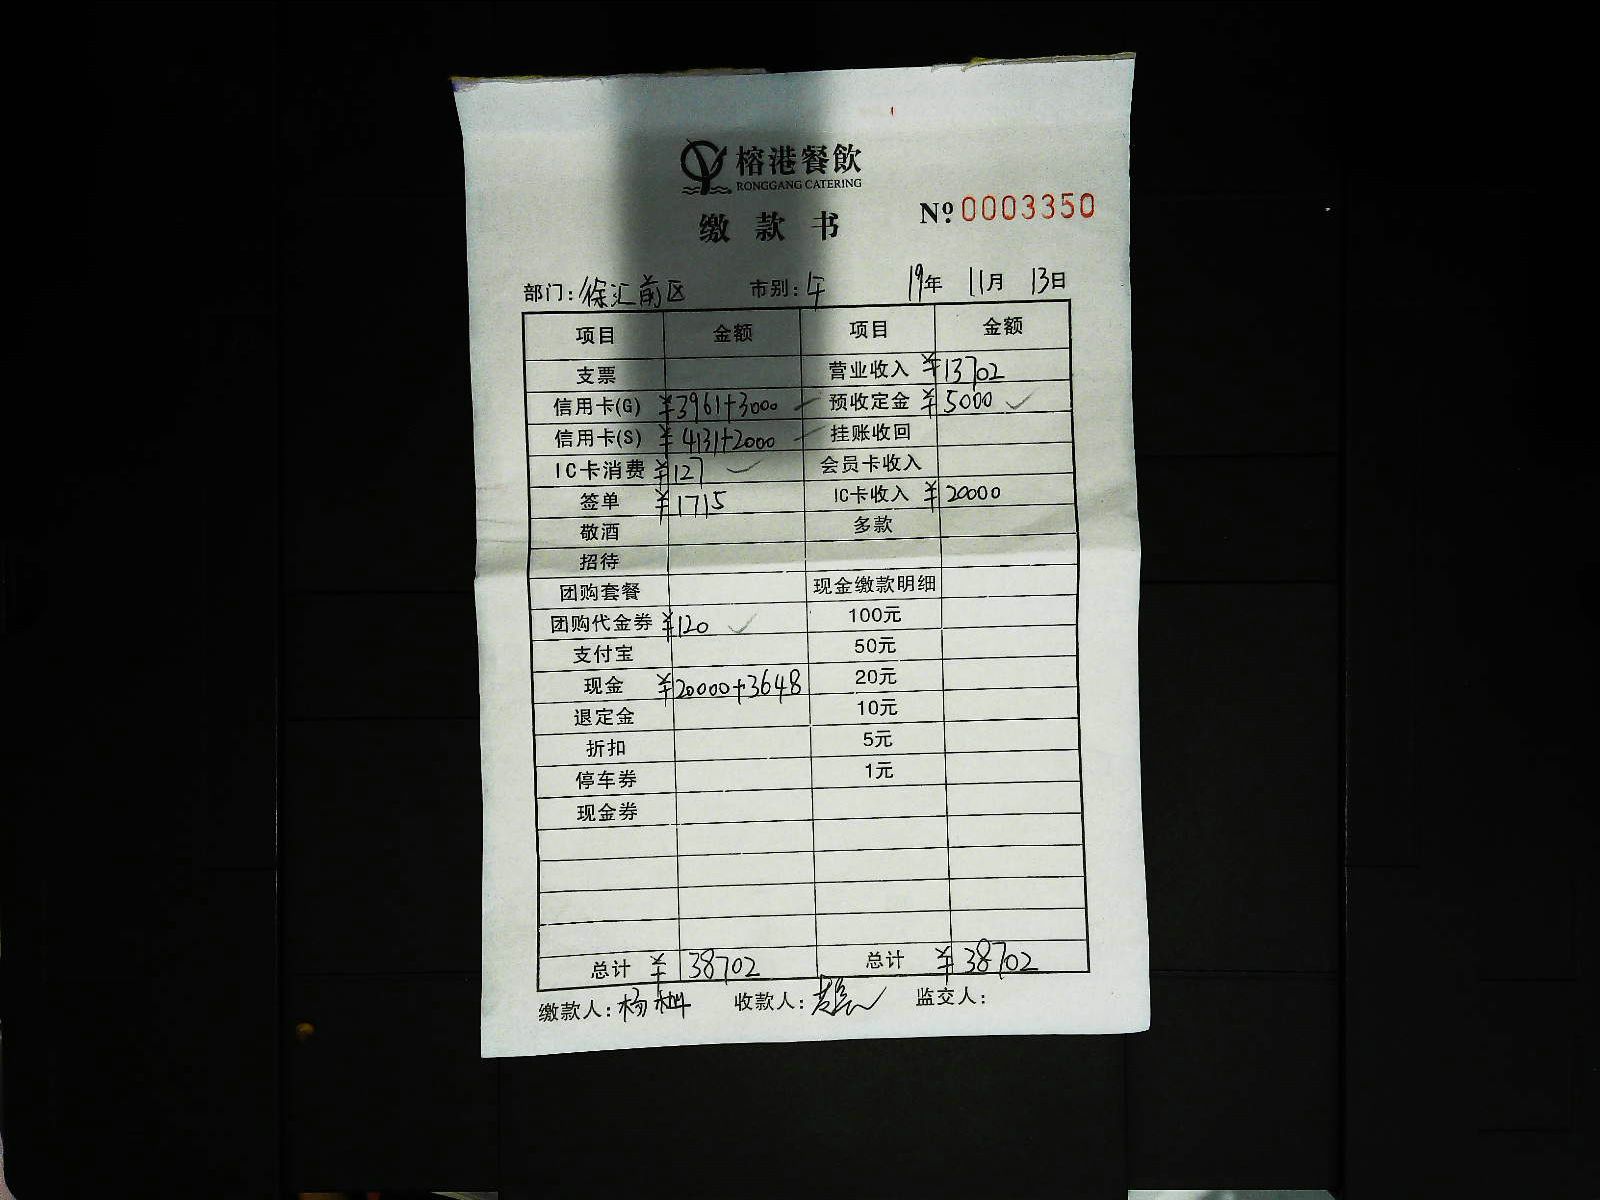 榕港餐飲
RONGGANG CATERING
缴款书
Nº 0003350
部门:徐汇前区 市别:午 19年 11月 13日
项目 金额 项目 金额
支票 营业收入 ¥13702
信用卡(G) ¥3961+3000 预收定金 ¥5000 ✓
信用卡(S) ¥4131+2000 挂账收回
IC卡消费 ¥127 ✓ 会员卡收入
签单 ¥1715 IC卡收入 ¥20000
敬酒 多款
招待
团购套餐 现金缴款明细
团购代金券 ¥120 ✓ 100元
支付宝 50元
现金 ¥20000+3648 20元
退定金 10元
折扣 5元
停车券 1元
现金券
总计 ¥38702 总计 ¥38702
缴款人:杨 收款人: 监交人: